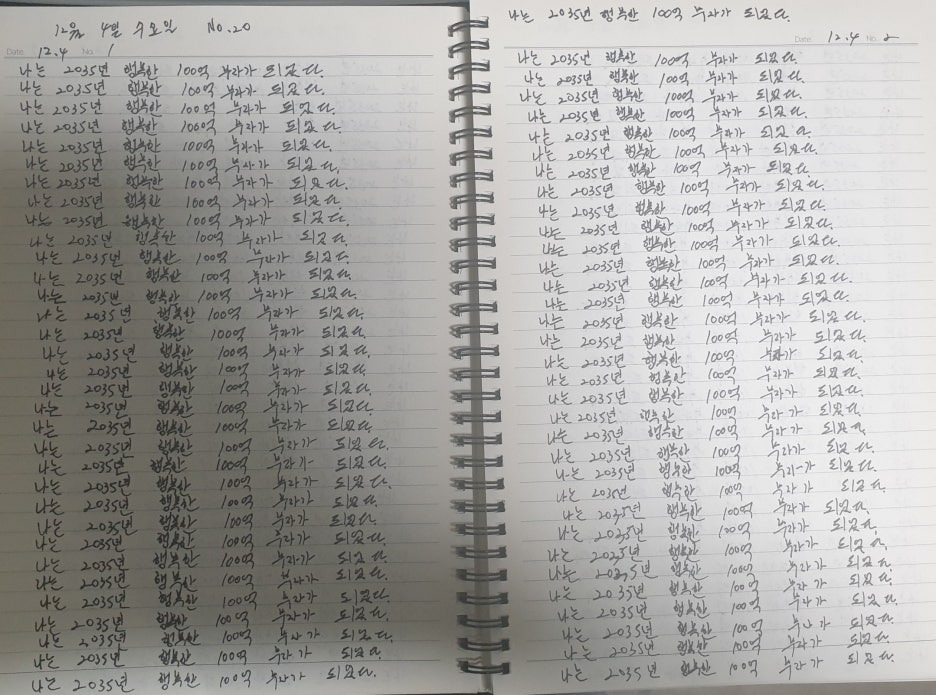 12월 4일 수요일 No.20
Date. 12.4 No. 1
나는 2035년 행복한 100억 부자가 되었다.
나는 2035년 행복한 100억 부자가 되었다.
나는 2035년 행복한 100억 부자가 되었다.
나는 2035년 행복한 100억 부자가 되었다.
나는 2035년 행복한 100억 부자가 되었다.
나는 2035년 행복한 100억 부자가 되었다.
나는 2035년 행복한 100억 부자가 되었다.
나는 2035년 행복한 100억 부자가 되었다.
나는 2035년 행복한 100억 부자가 되었다.
나는 2035년 행복한 100억 부자가 되었다.
나는 2035년 행복한 100억 부자가 되었다.
나는 2035년 행복한 100억 부자가 되었다.
나는 2035년 행복한 100억 부자가 되었다.
나는 2035년 행복한 100억 부자가 되었다.
나는 2035년 행복한 100억 부자가 되었다.
나는 2035년 행복한 100억 부자가 되었다.
나는 2035년 행복한 100억 부자가 되었다.
나는 2035년 행복한 100억 부자가 되었다.
나는 2035년 행복한 100억 부자가 되었다.
나는 2035년 행복한 100억 부자가 되었다.
나는 2035년 행복한 100억 부자가 되었다.
나는 2035년 행복한 100억 부자가 되었다.
나는 2035년 행복한 100억 부자가 되었다.
나는 2035년 행복한 100억 부자가 되었다.
나는 2035년 행복한 100억 부자가 되었다.
나는 2035년 행복한 100억 부자가 되었다.
나는 2035년 행복한 100억 부자가 되었다.
나는 2035년 행복한 100억 부자가 되었다.
나는 2035년 행복한 100억 부자가 되었다.
나는 2035년 행복한 100억 부자가 되었다.
나는 2035년 행복한 100억 부자가 되었다.
나는 2035년 행복한 100억 부자가 되었다.
나는 2035년 행복한 100억 부자가 되었다.
나는 2035년 행복한 100억 부자가 되었다.
Date. 12.4 No. 2
나는 2035년 행복한 100억 부자가 되었다.
나는 2035년 행복한 100억 부자가 되었다.
나는 2035년 행복한 100억 부자가 되었다.
나는 2035년 행복한 100억 부자가 되었다.
나는 2035년 행복한 100억 부자가 되었다.
나는 2035년 행복한 100억 부자가 되었다.
나는 2035년 행복한 100억 부자가 되었다.
나는 2035년 행복한 100억 부자가 되었다.
나는 2035년 행복한 100억 부자가 되었다.
나는 2035년 행복한 100억 부자가 되었다.
나는 2035년 행복한 100억 부자가 되었다.
나는 2035년 행복한 100억 부자가 되었다.
나는 2035년 행복한 100억 부자가 되었다.
나는 2035년 행복한 100억 부자가 되었다.
나는 2035년 행복한 100억 부자가 되었다.
나는 2035년 행복한 100억 부자가 되었다.
나는 2035년 행복한 100억 부자가 되었다.
나는 2035년 행복한 100억 부자가 되었다.
나는 2035년 행복한 100억 부자가 되었다.
나는 2035년 행복한 100억 부자가 되었다.
나는 2035년 행복한 100억 부자가 되었다.
나는 2035년 행복한 100억 부자가 되었다.
나는 2035년 행복한 100억 부자가 되었다.
나는 2035년 행복한 100억 부자가 되었다.
나는 2035년 행복한 100억 부자가 되었다.
나는 2035년 행복한 100억 부자가 되었다.
나는 2035년 행복한 100억 부자가 되었다.
나는 2035년 행복한 100억 부자가 되었다.
나는 2035년 행복한 100억 부자가 되었다.
나는 2035년 행복한 100억 부자가 되었다.
나는 2035년 행복한 100억 부자가 되었다.
나는 2035년 행복한 100억 부자가 되었다.
나는 2035년 행복한 100억 부자가 되었다.